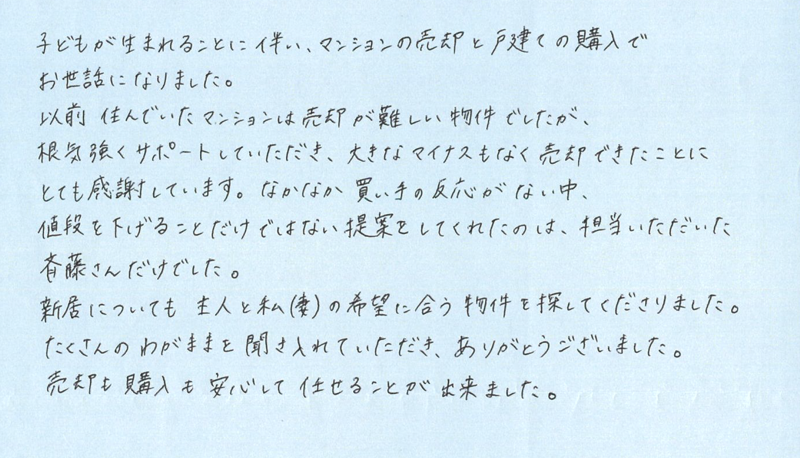 子どもが生まれることに伴い、マンションの売却と戸建ての購入で
お世話になりました。
以前住んでいたマンションは売却が難しい物件でしたが、
根気強くサポートしていただき、大きなマイナスもなく売却できたことに
とても感謝しています。なかなか買い手の反応がない中、
値段を下げることだけではない提案をしてくれたのは、担当いただいた
斉藤さんだけでした。
新居についても主人と私(妻)の希望に合う物件を探してくださりました。
たくさんのわがままを聞き入れていただき、ありがとうございました。
売却も購入も安心して任せることが出来ました。